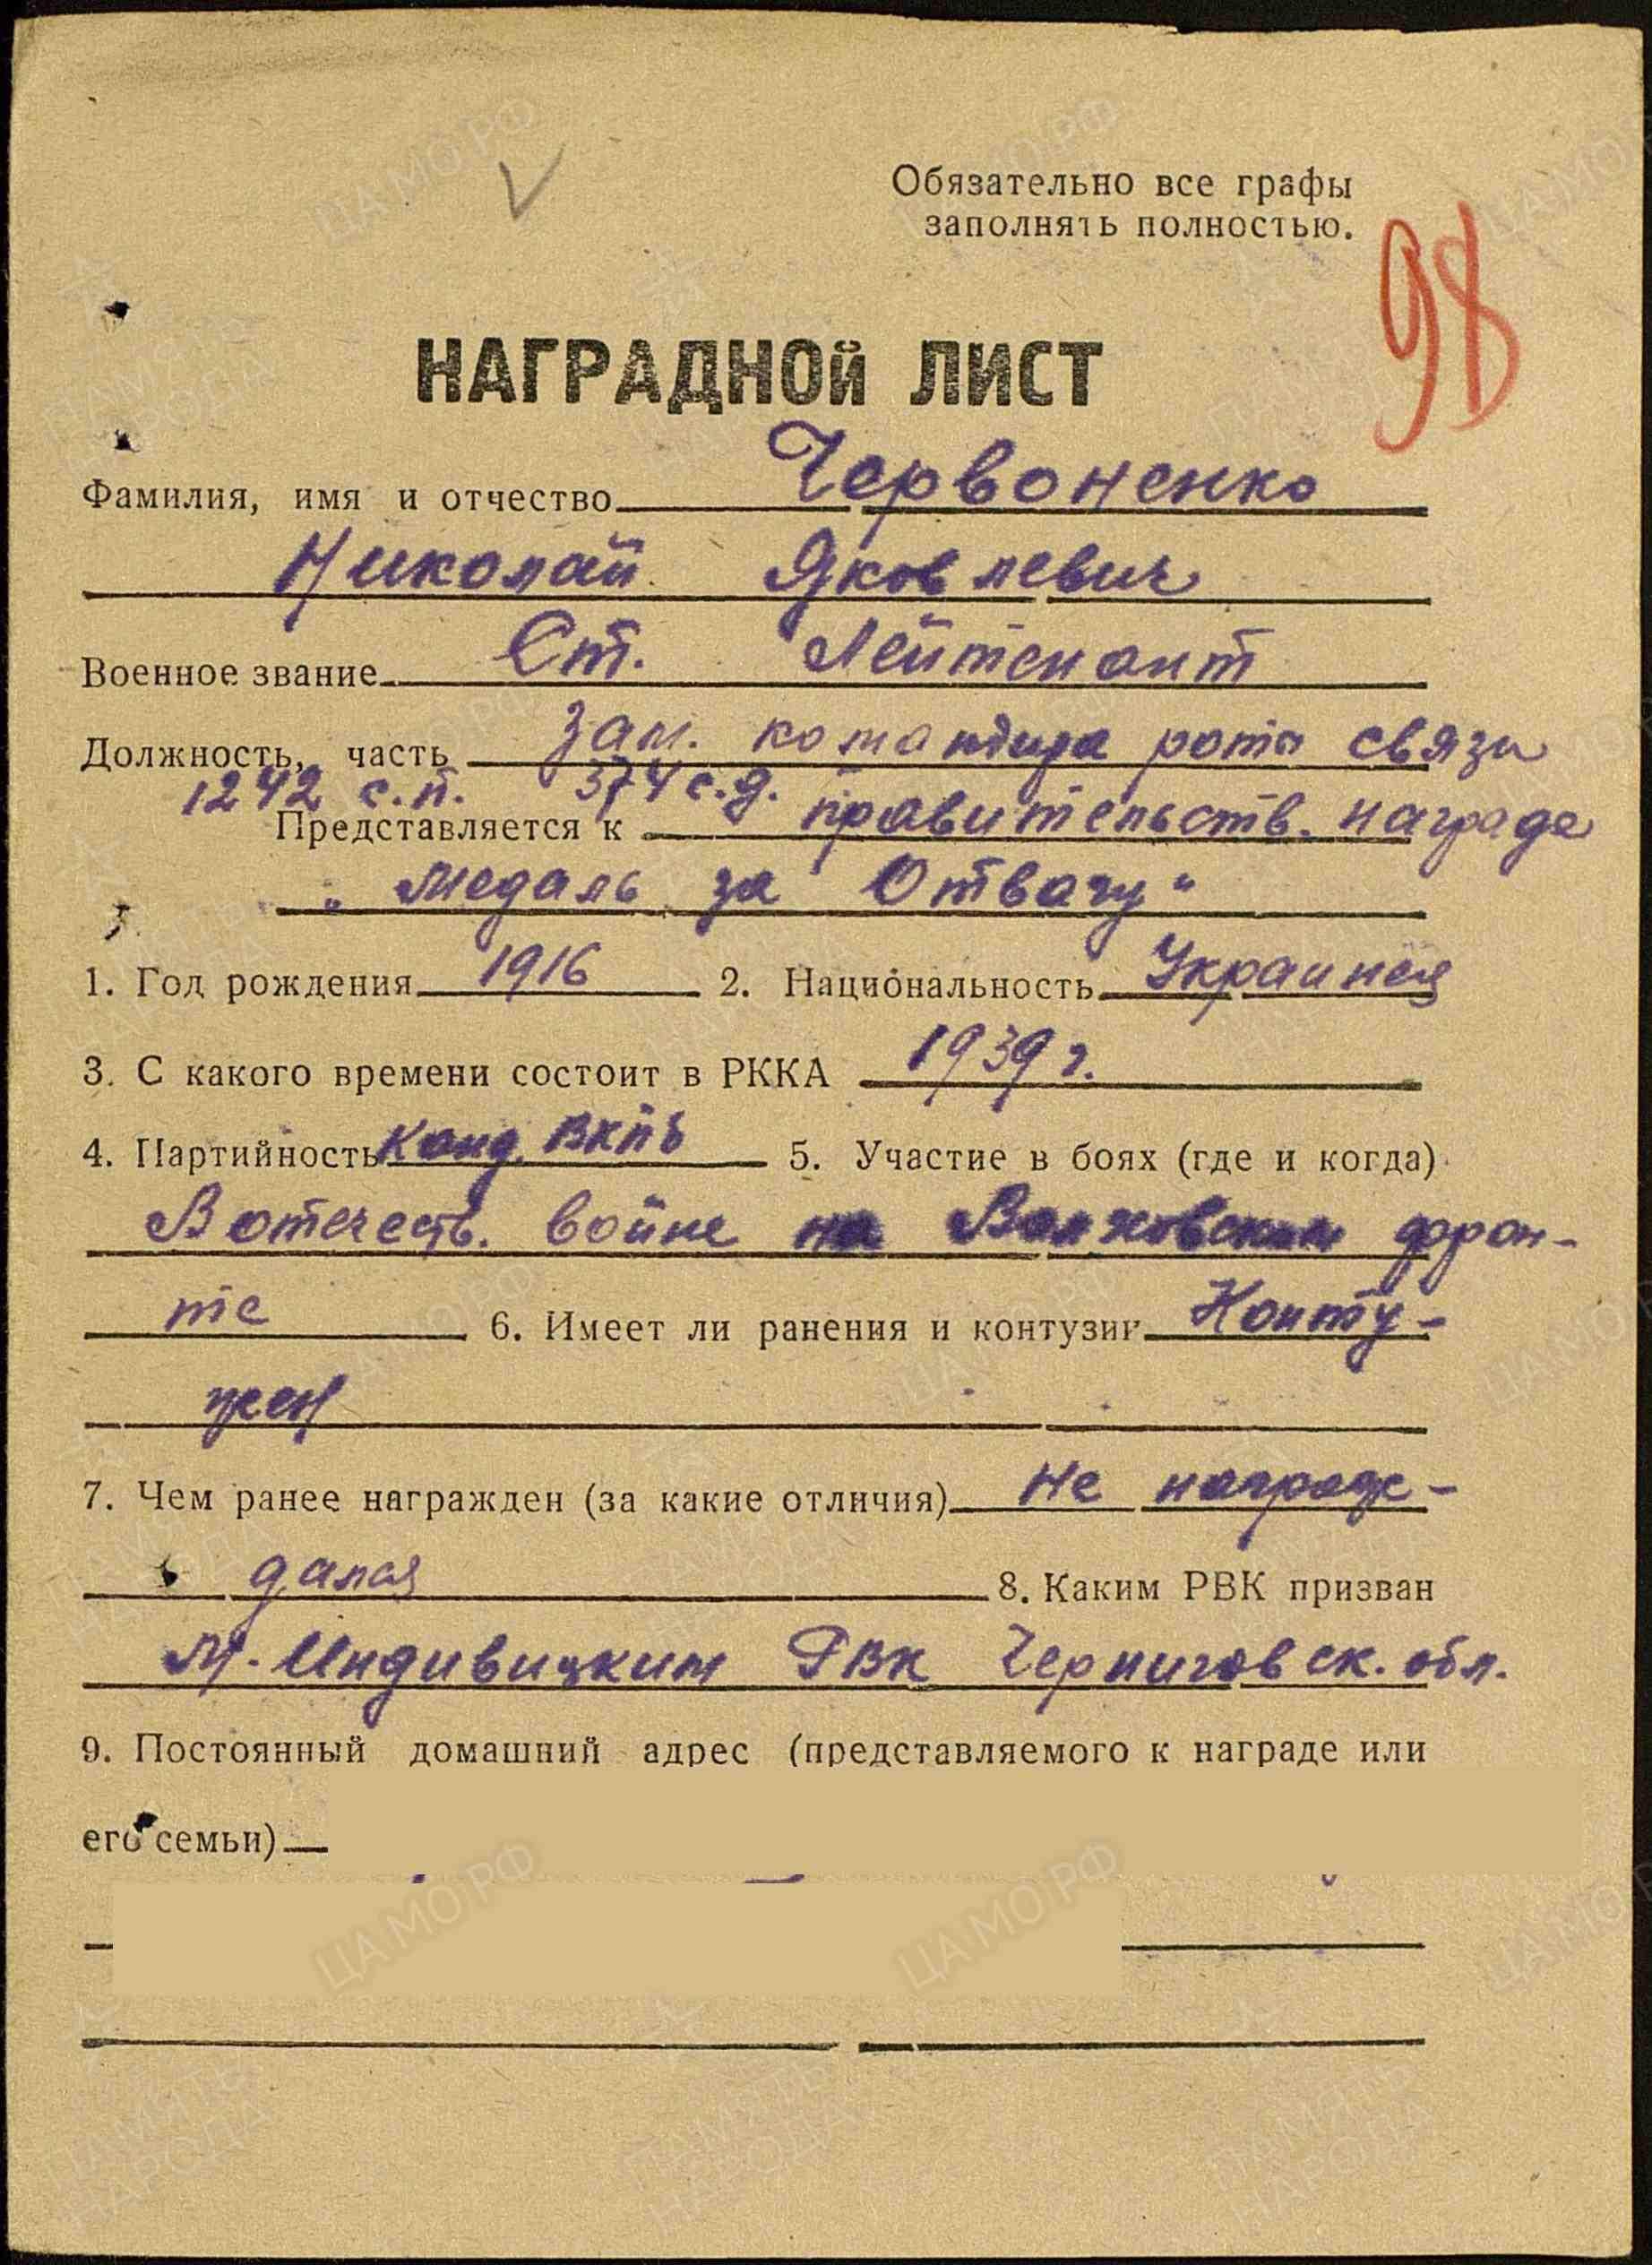 Обязательно все графы
заполнять полностью.
98
НАГРАДНОЙ ЛИСТ
Фамилия, имя и отчество Червоненко
Николай Яковлевич
Военное звание Ст. Лейтенант
Должность, часть Зам. командира роты связи
1242 с.п. 374 с.д.
Представляется к правительств. награде
„Медаль за Отвагу“
1. Год рождения 1916 2. Национальность Украинец
3. С какого времени состоит в РККА 1939 г.
4. Партийность Канд. ВКПб 5. Участие в боях (где и когда)
В отечеств. войне на Волховском фрон-
те 6. Имеет ли ранения и контузии Конту-
жен
7. Чем ранее награжден (за какие отличия) Не награж-
дался 8. Каким РВК призван
М. РВК Черниговск. обл.
9. Постоянный домашний адрес (представляемого к награде или
его семьи)
ЦАМО РФ
ПАМЯТЬ НАРОДА